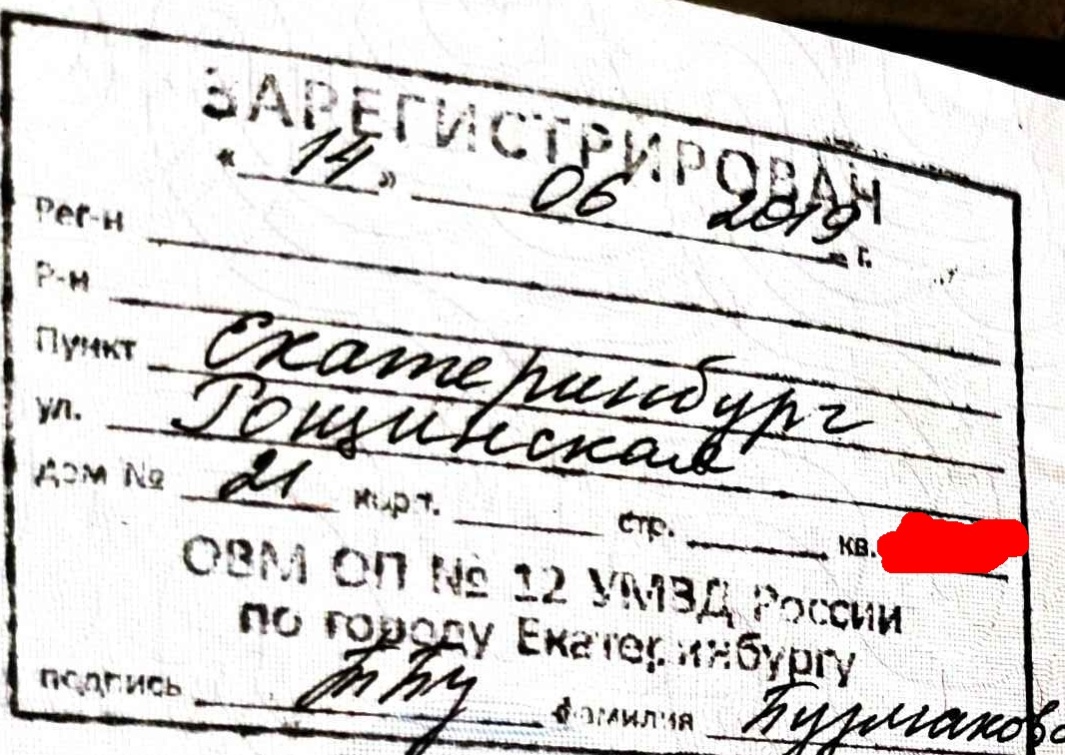 ЗАРЕГИСТРИРОВАН
« 14 » 06 2019 г.
Рег-н
Р-н
Пункт Екатеринбург
ул. Рощинская
дом № 21 корп. стр. кв.
ОВМ ОП № 12 УМВД России
по городу Екатеринбургу
подпись фамилия Бурмакова